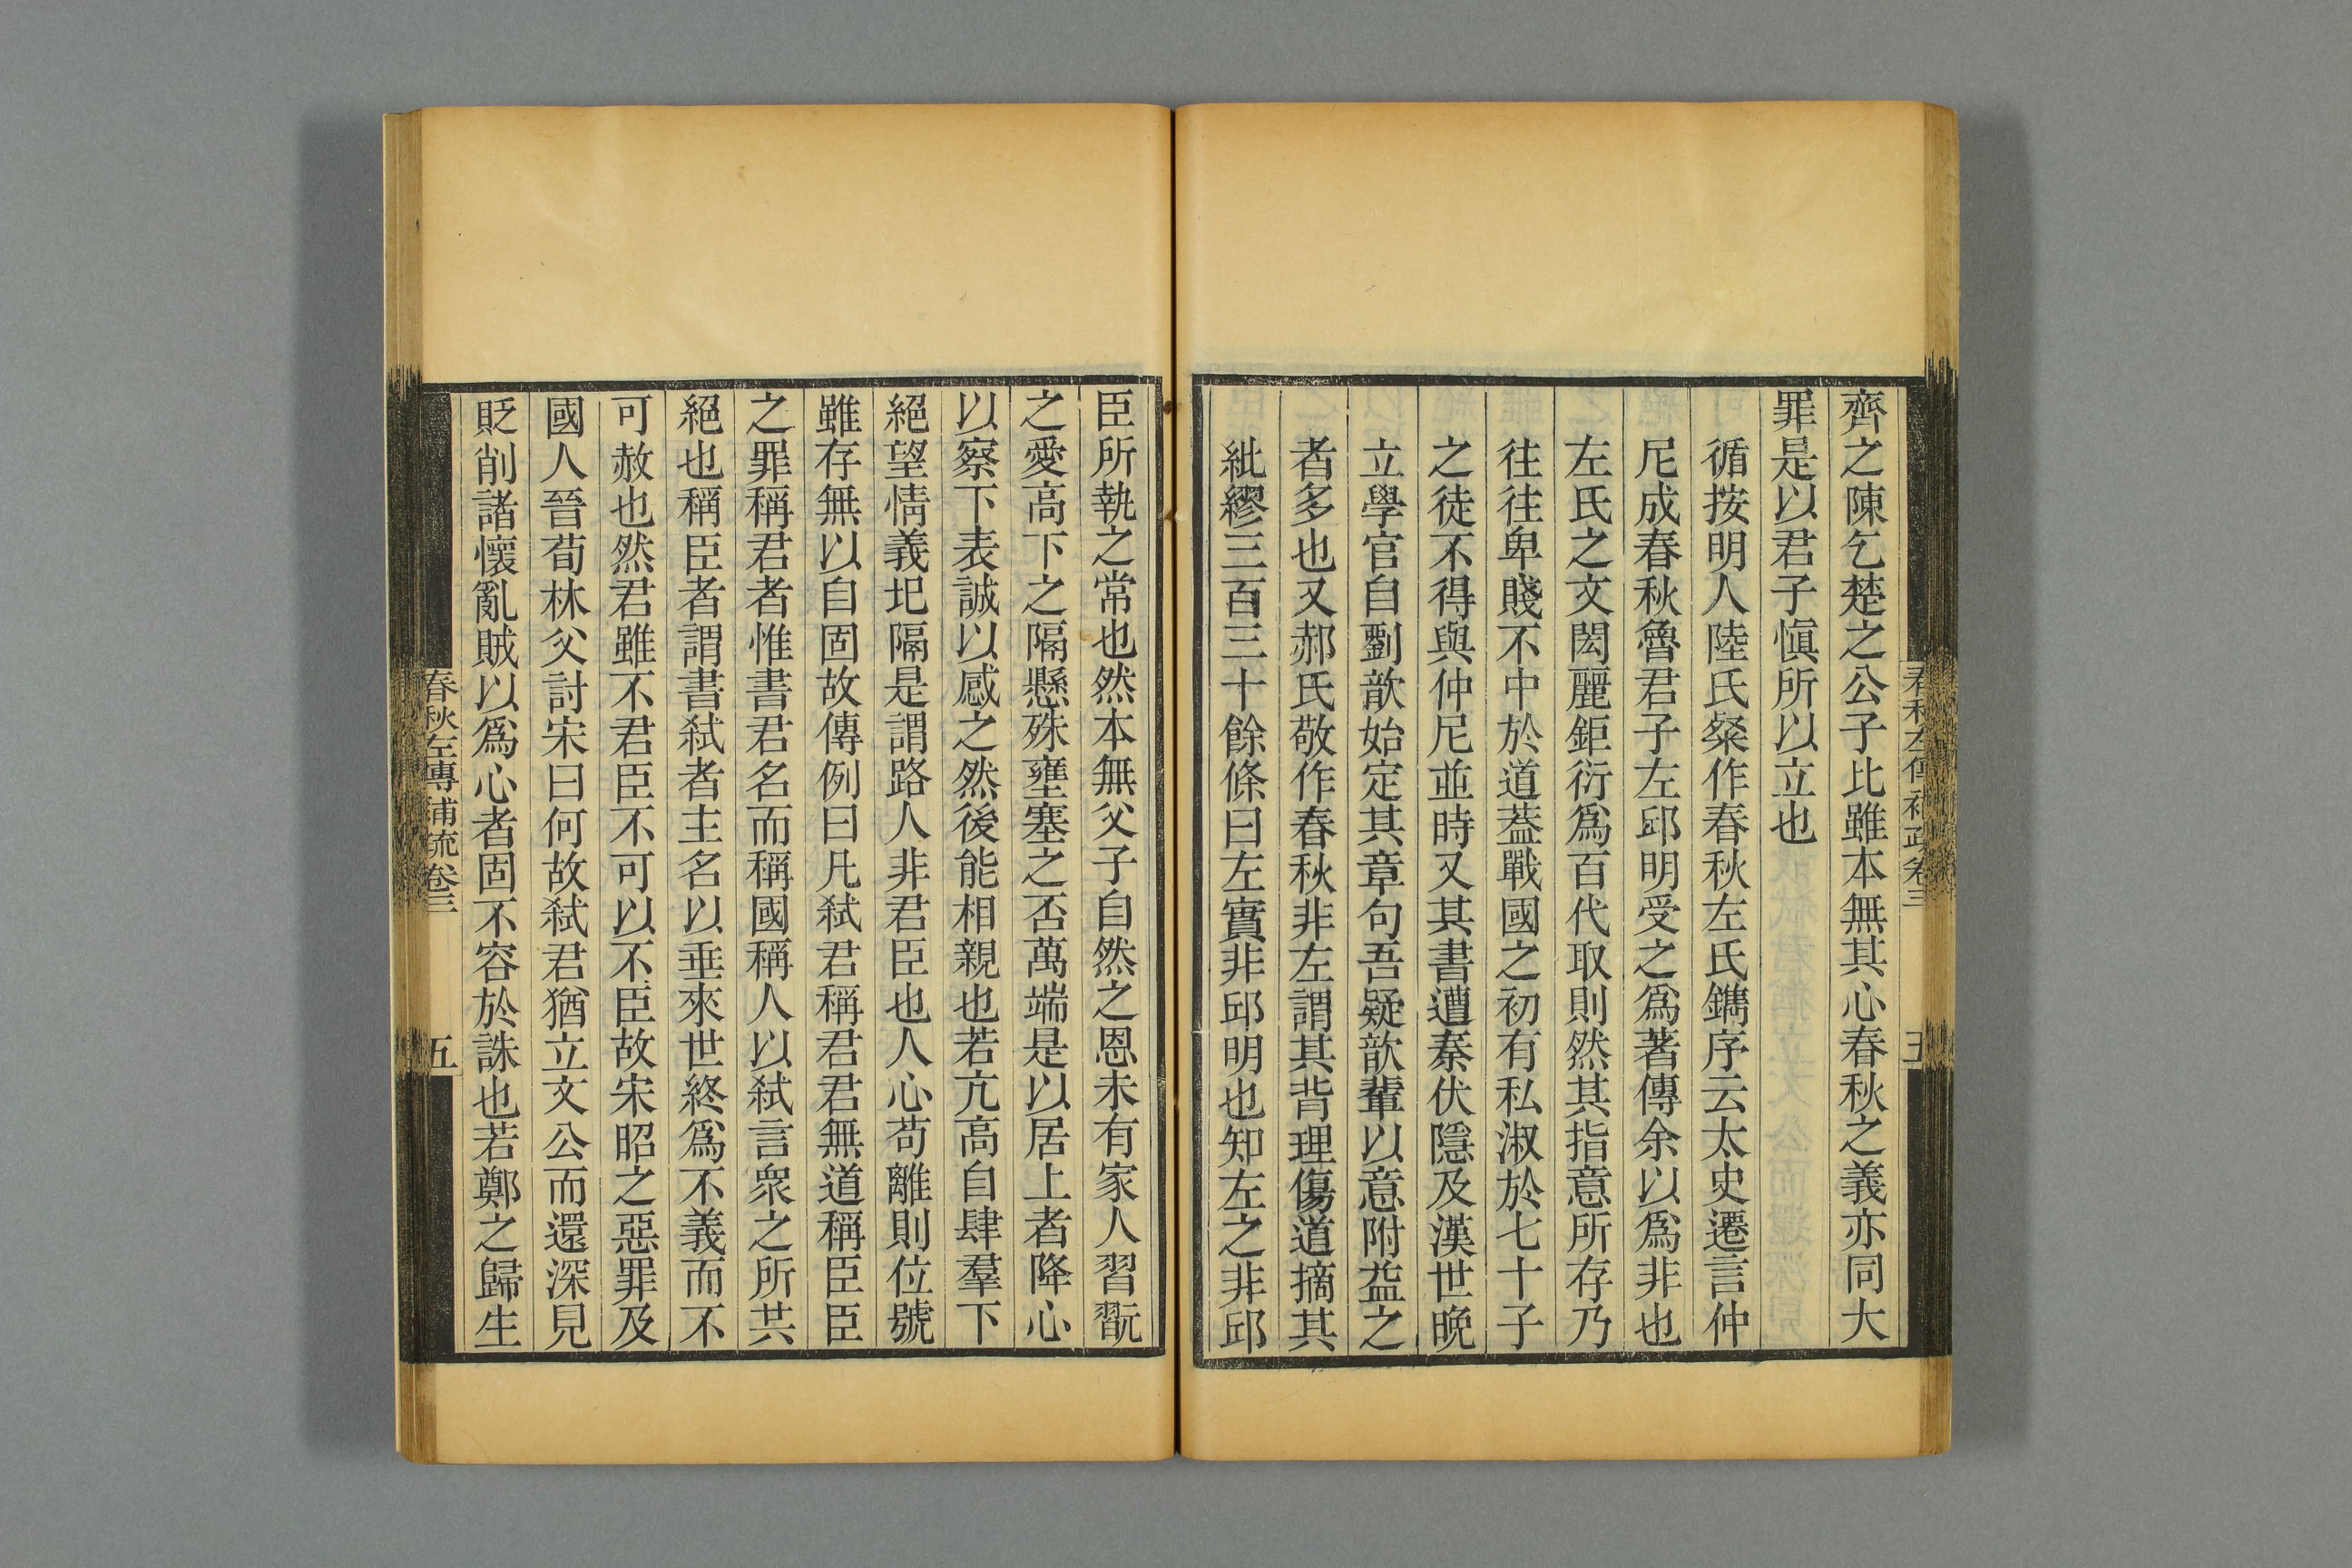 春秋左傳補疏卷三 五
齊之陳乞楚之公子比雖本無其心春秋之義亦同大
罪是以君子愼所以立也
循按明人陸氏粲作春秋左氏鐫序云太史遷言仲
尼成春秋魯君子左邱明受之爲著傳余以爲非也
左氏之文閎麗鉅衍爲百代取則然其指意所存乃
往往卑賤不中於道蓋戰國之初有私淑於七十子
之徒不得與仲尼並時又其書遭秦伏隱及漢世晚
立學官自劉歆始定其章句吾疑歆輩以意附益之
者多也又郝氏敬作春秋非左謂其背理傷道摘其
紕繆三百三十餘條曰左實非邱明也知左之非邱
臣所執之常也然本無父子自然之恩未有家人習翫
之愛高下之隔懸殊壅塞之否萬端是以居上者降心
以察下表誠以感之然後能相親也若亢高自肆羣下
絕望情義圯隔是謂路人非君臣也人心苟離則位號
雖存無以自固故傳例曰凡弒君稱君君無道稱臣臣
之罪稱君者惟書君名而稱國稱人以弒言衆之所共
絕也稱臣者謂書弒者主名以垂來世終爲不義而不
可赦也然君雖不君臣不可以不臣故宋昭之惡罪及
國人晉荀林父討宋曰何故弒君猶立文公而還深見
貶削諸懷亂賊以爲心者固不容於誅也若鄭之歸生
春秋左傳補疏卷三 五